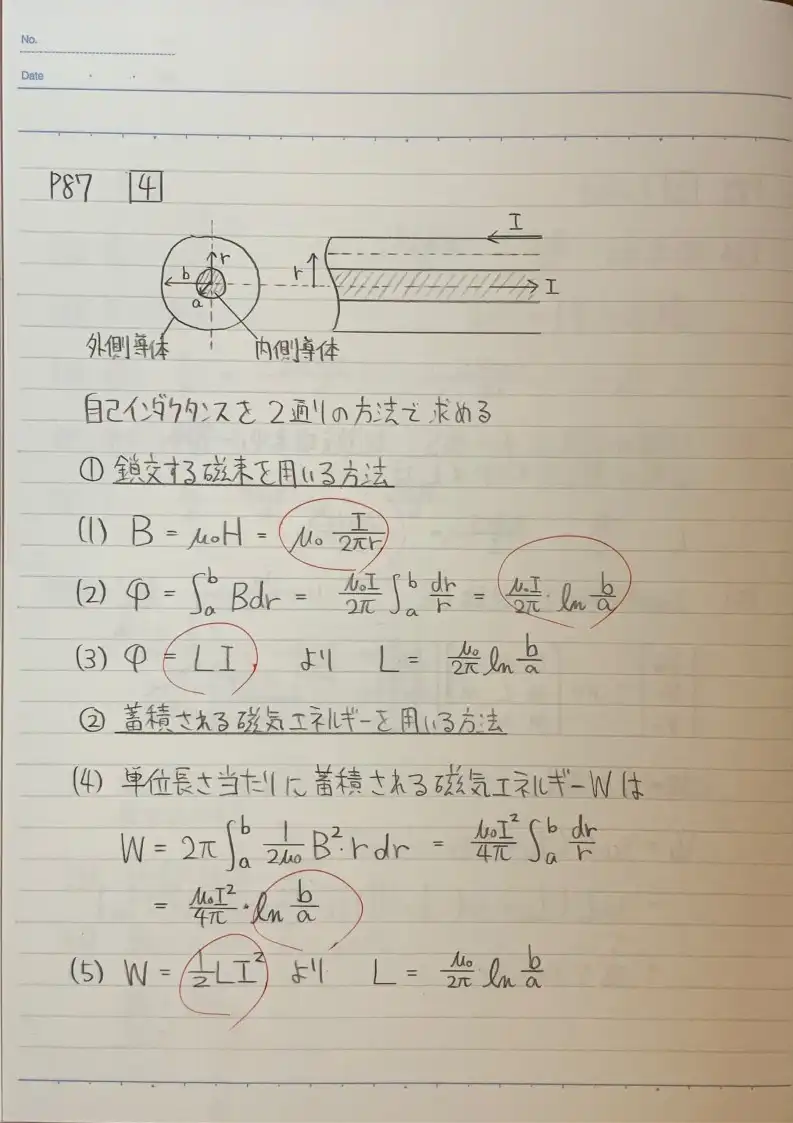 No.
Date
P87 4
I
r
b
r
a
I
外側導体 内側導体
自己インダクタンスを2通りの方法で求める
① 鎖交する磁束を用いる方法
(1) B = μ₀H = μ₀ I/2πr
(2) Φ = ∫ₐᵇ Bdr = μ₀I/2π ∫ₐᵇ dr/r = μ₀I/2π · ln b/a
(3) Φ = LI より L = μ₀/2π ln b/a
② 蓄積される磁気エネルギーを用いる方法
(4) 単位長さ当たりに蓄積される磁気エネルギーWは
W = 2π ∫ₐᵇ 1/2μ₀ B²·r dr = μ₀I²/4π ∫ₐᵇ dr/r
= μ₀I²/4π · ln b/a
(5) W = 1/2 LI² より L = μ₀/2π ln b/a